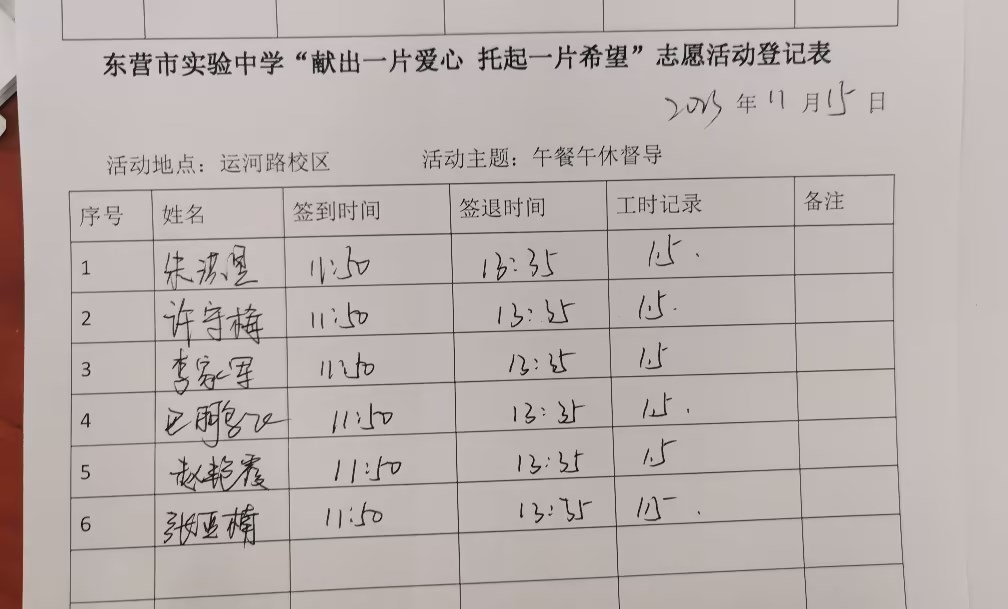 东营市实验中学“献出一片爱心 托起一片希望”志愿活动登记表
2023 年 11 月 15 日
活动地点：运河路校区 活动主题：午餐午休督导
序号 姓名 签到时间 签退时间 工时记录 备注
1 朱洪 11:50 13:35 1.5.
2 许守梅 11:50 13:35 1.5.
3 李家军 11:50 13:35 1.5
4 11:50 13:35 1.5.
5 赵艳霞 11:50 13:35 1.5
6 张亚楠 11:50 13:35 1.5.